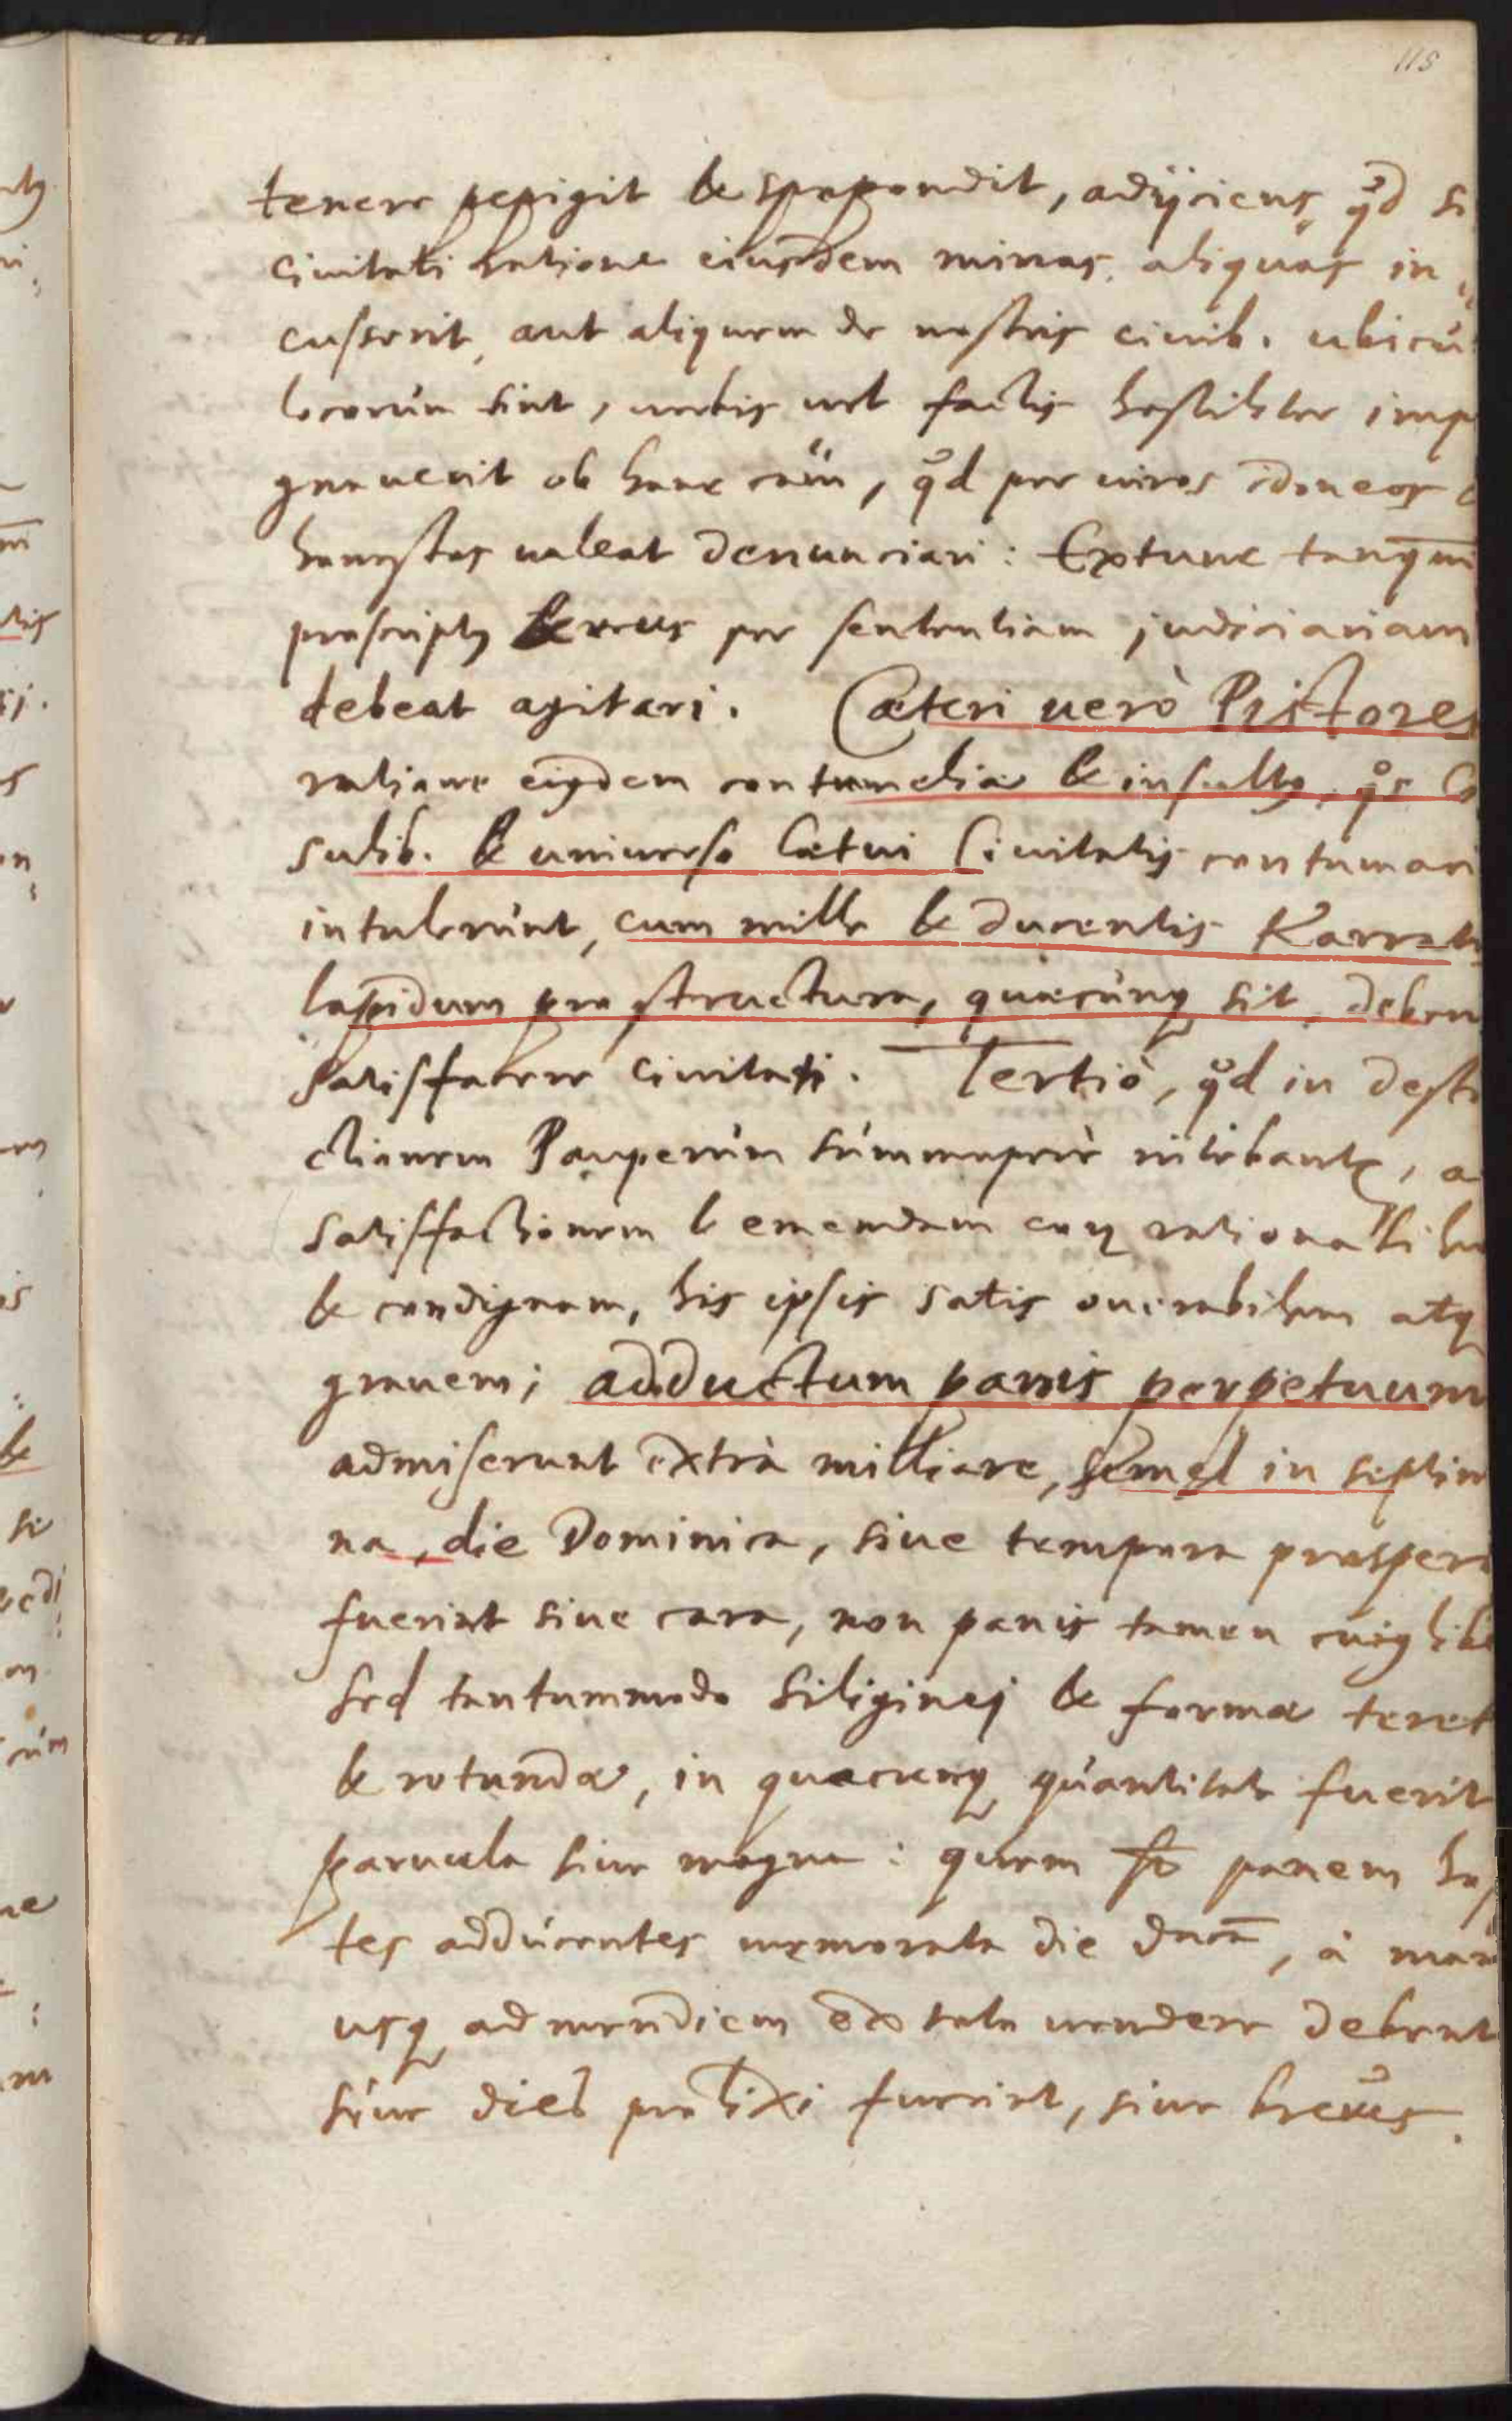 115
tenere pepigit & spopondit, adijciens, qd si
ciuitati ratione eiusdem minas aliquas in
cusserit, aut aliquem de nostris ciuib. ubicu
locorum sint, verbis vel factis hostiliter imp
gnauerit ob hanc cãm, qd per viros idoneos &
honestos valeat denunciari: Extunc tanqm
proscriptq & reus per sententiam judiciariam
debeat agitari. Cæteri uerò Pistores
ratione eiqdem contumeliæ & insultq, qs Co
sulib. & universo Cœtui Civitatis contumaci
intulerunt, cum mille & ducentis Karratis
lapidum pro structura, quæcunq sit, deben
satisfacere civitati. Tertiò, qd in destru
ctionem Pauperum summoperè nitebantr, a
satisfactionem & emendam eoq rationabilem
& condignam, his ipsis satis onerabilem atq
grauem; adductum panis perpetuum
admiserunt extrà milliare, semel in septim
na, die Dominica, siue tempora prospera
fuerint siue cara, non panis tamen cuiqlibe
sed tantummodo siliginej & formæ teret
& rotundæ, in quacunq quantitate fuerit
paruula siue magna: quem panem hos
tes adducentes memorata die dnca, à mane
usq ad meridiem & vendere debent
siue dies prolixi fuerint, siue breues.